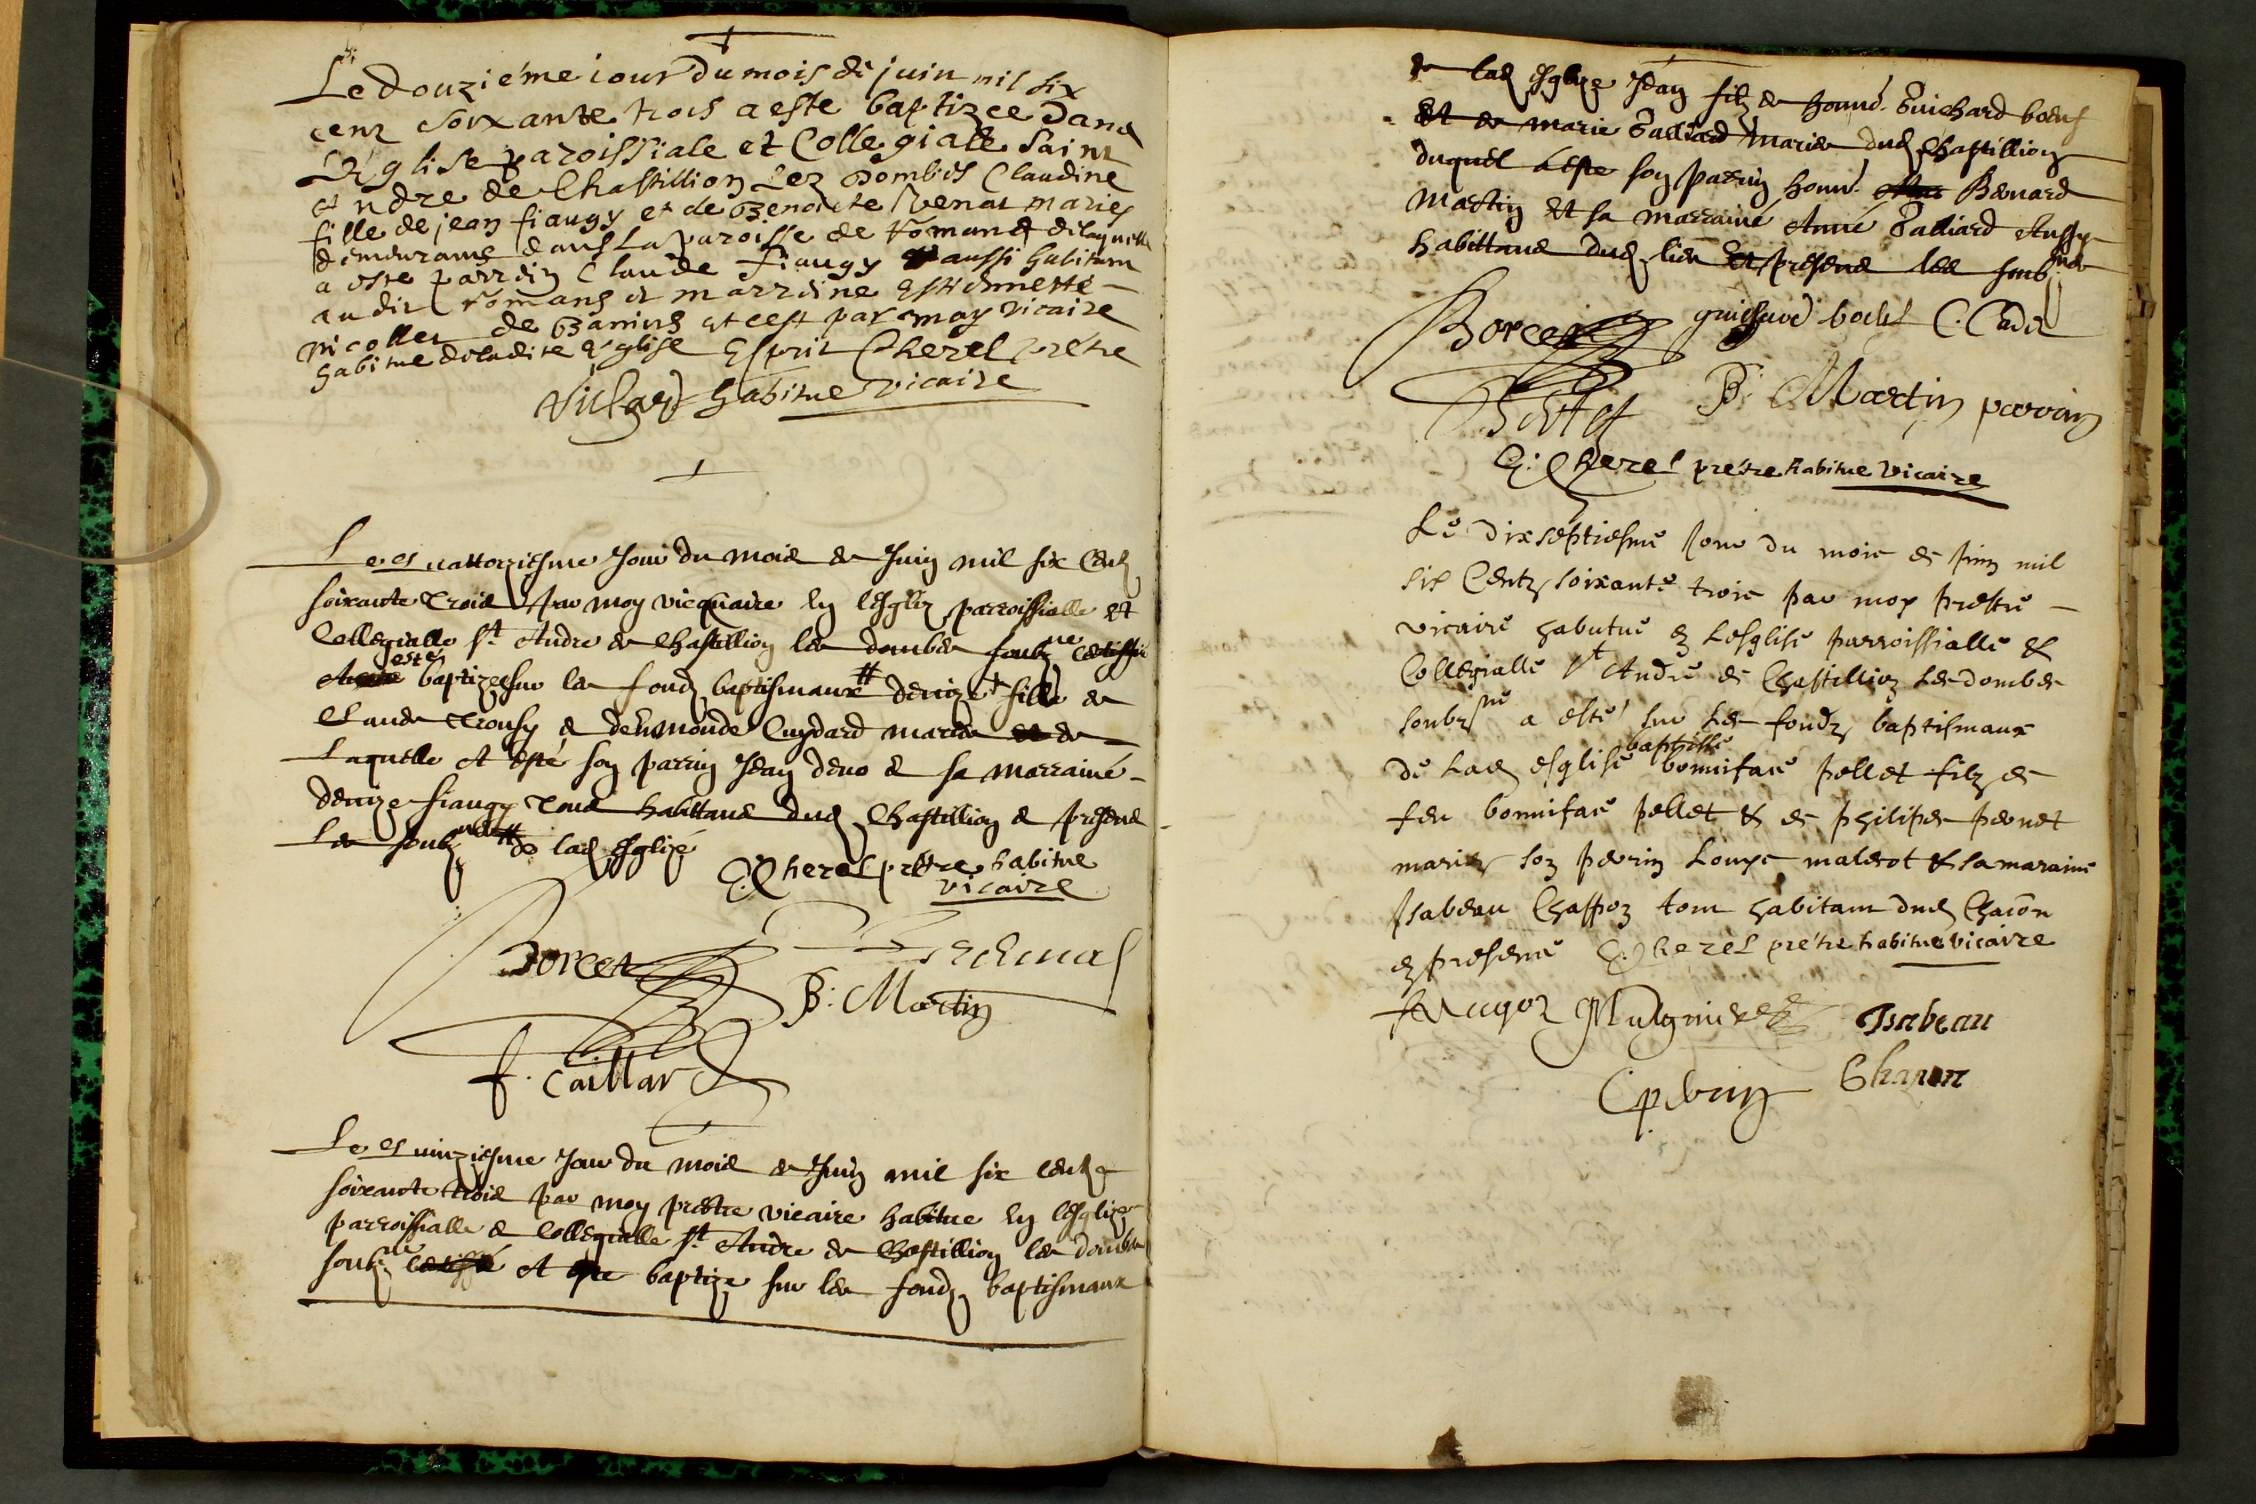 Le douziéme iour du mois de juin mil six
cent soixante trois a este baptizee dans
L'église paroissiale et Collegialle Saint
Andre de Chastillion Lez Dombes Claudine
fille de jean fiaugy et de Benoicte Venat maries
demeurans dans La paroisse de Romans de laquelle
a este parrein Claude fiaugy aussi habitant
audit romans et marreine Estiennette
nicollet de Banins et cest par moy vicaire
habitue de ladite Eglise Esprit Cherel prétre
Vichard habitue vicaire
Le quattorziesme Jour du mois de Juin mil six Centz
soixante Trois par moy vicquaire En lesglize parroissialle et
Collegialle St Andre de Chastillion les dombes soubzne
A esté baptizee sur les fondz baptismaux denize fille de
Claude Trousy & de Esmonde Cuydard maries et de
Laquelle A esté son parrin Jean & sa marrainé
denize fiaugy Tous habittans dud Chastillion & presens
Les soubznes de lad Esglizé
E Cherel prêtre habitue
vicaire
Borcet
B: Martin
f. Caillard
Le quinziesme Jour du mois de Juin mil six centz
soixante trois par moy prestre vicaire habitue En lesglize
parroissialle & Collegialle St Andre de Chastillion les dombes
soubzne A este baptize sur les fondz baptismaux
de lad Esglize Jean filz de honné Guichard boeuf
Et de Marie Galliard Maries dud Chastillion
duquel a este son parrin honné Benard
Martin Et sa marrainé Anné Galliard Aussy
habittans dud lieu Et presens les soubznes
Borcet guichard C. Cadet
B: Martin parrin
E: Cherel prétre habitue vicaire
Le dixseptiesme Jour du mois de Juin mil
six Centz soixante trois par moy prestre
vicaire habutue en Lesglise parroissialle &
Collegialle St André de Chastillion Les dombes
soubzné a esté sur Les fondz baptismaux
de Lad esglise baptissé bonnifacé pellet filz de
feu bonnifacé pellet & de philipes pernet
mariez son perrin Louys malerot & sa maraine
Isabeau Chappoz tous habitans dud Chaôn
en presence E Cherel prétre habitué vicaire
Isabeau
Chapon
C perrin